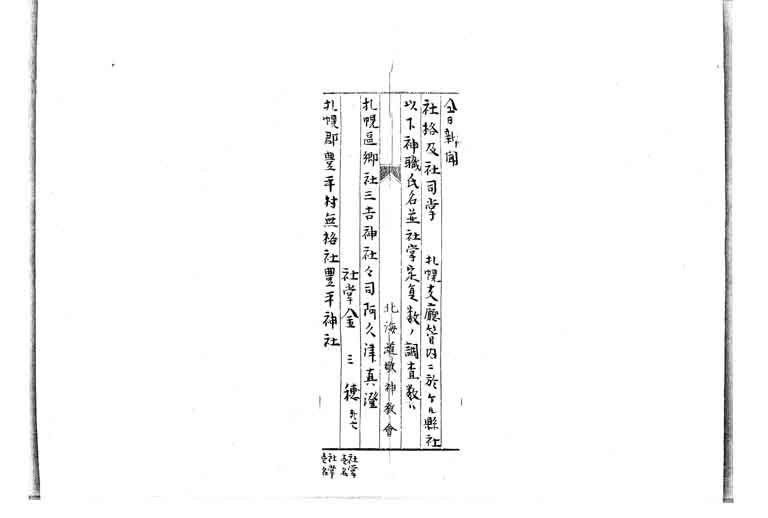 仝日新聞
社格及社司掌　札幌支廳管内ニ於ケル縣社
以下神職氏名並社掌定員数ノ調査数ハ
北海道敬神教會
札幌區郷社三吉神社々司阿久津真澄
社掌金三穂外七
札幌郡豊平村無格社豊平神社
社掌壱名
社掌壱名